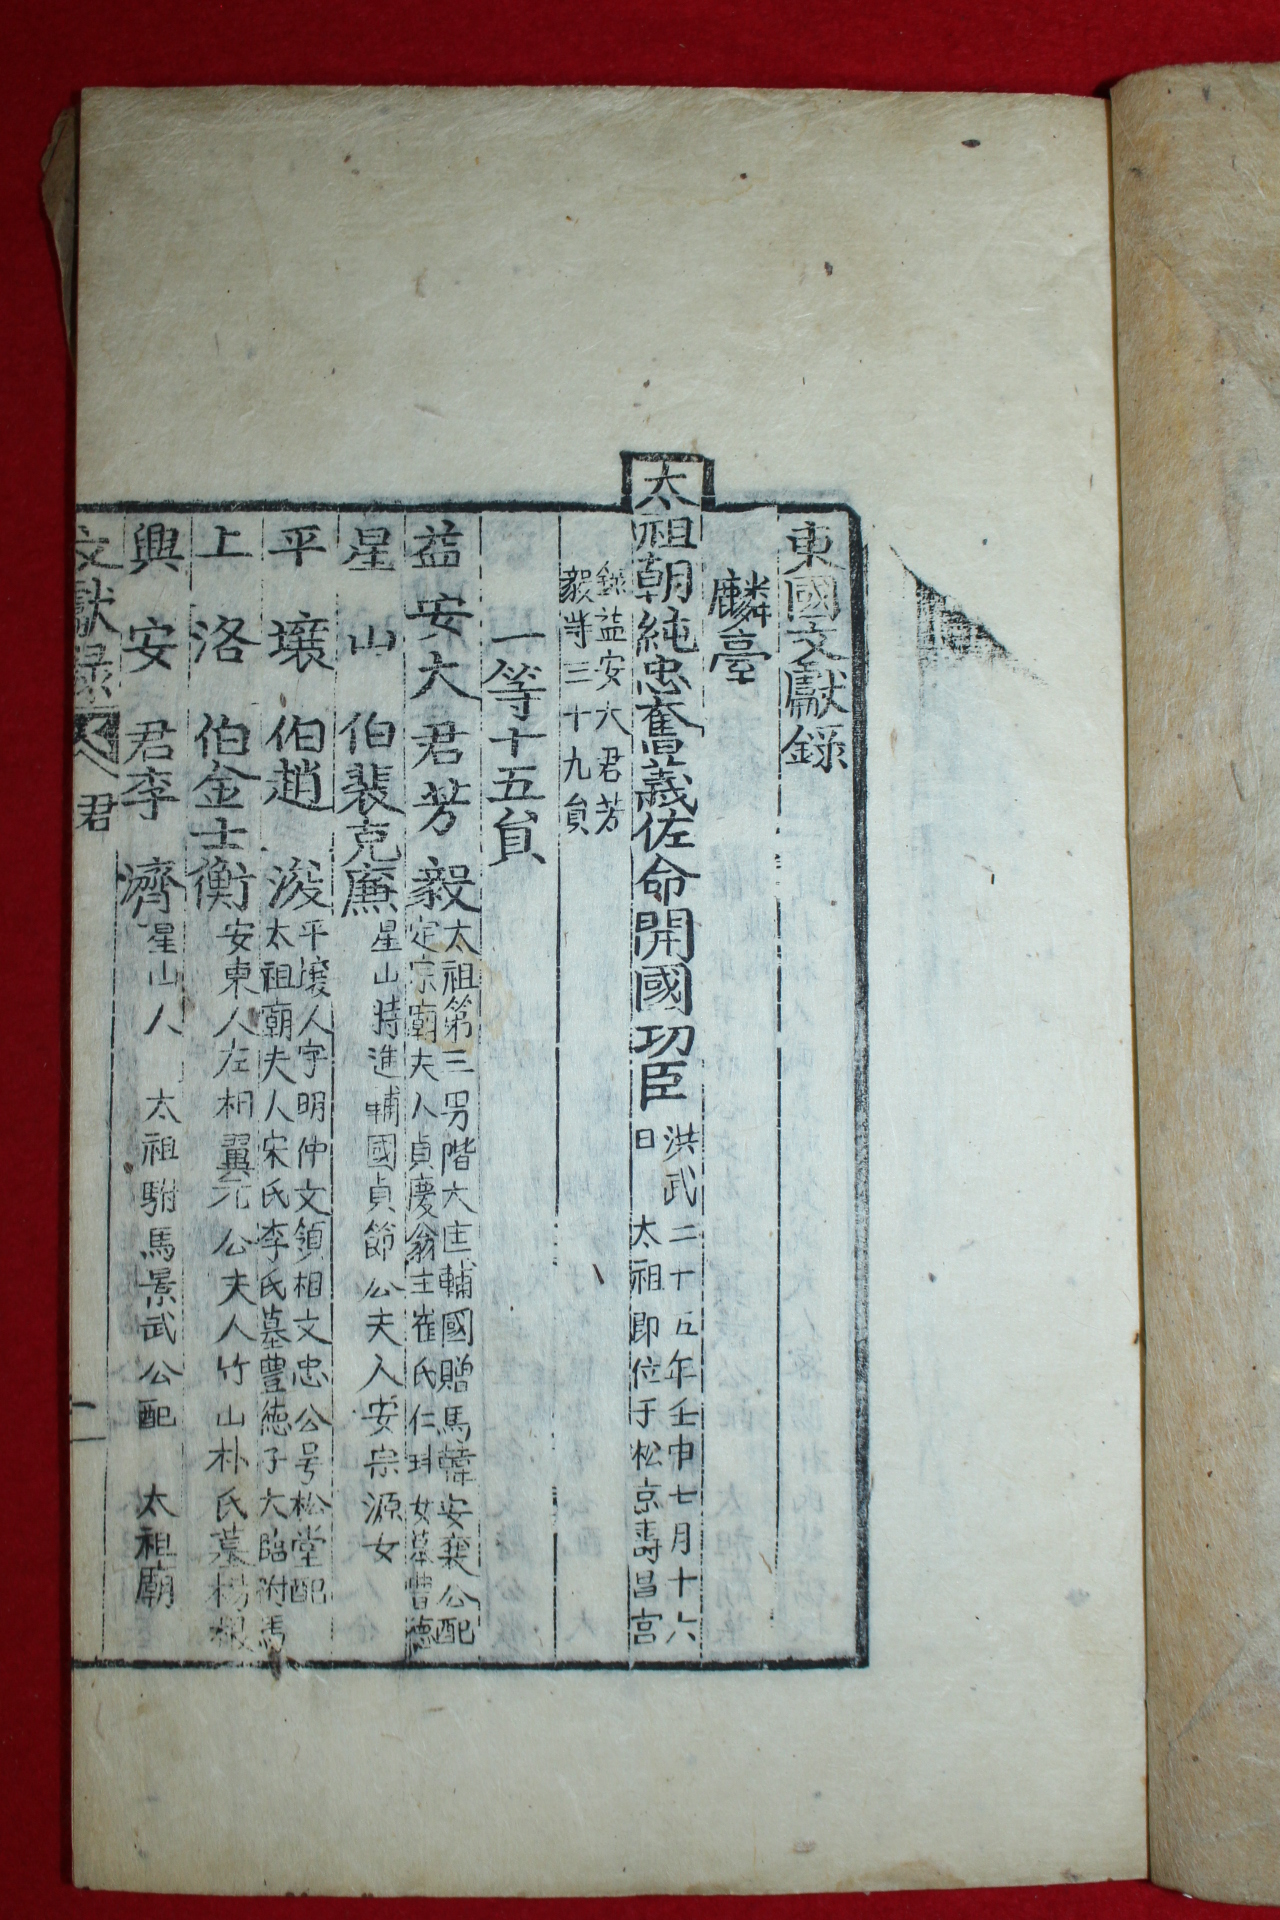 東國文獻錄
麟臺
太祖朝純忠奮義佐命開國功臣
洪武二十五年壬申七月十六
日 太祖即位于松京壽昌宮
錄益安大君芳
毅等三十九員
一等十五員
益安大君芳毅
太祖第三男階大匡輔國贈馬韓安襄公配
定宗廟夫人貞慶翁主崔氏仁㺶女墓豊德
星山伯裴克廉
星山特進輔國貞節公夫人安宗源女
平壤伯趙浚
平壤人字明仲文領相文忠公号松堂配
太祖廟夫人宋氏李氏墓豊德子大臨附馬
上洛伯金士衡
安東人左相翼元公夫人竹山朴氏墓楊根
興安君李濟
星山人 太祖駙馬景武公配 太祖廟
文獻錄
君
一